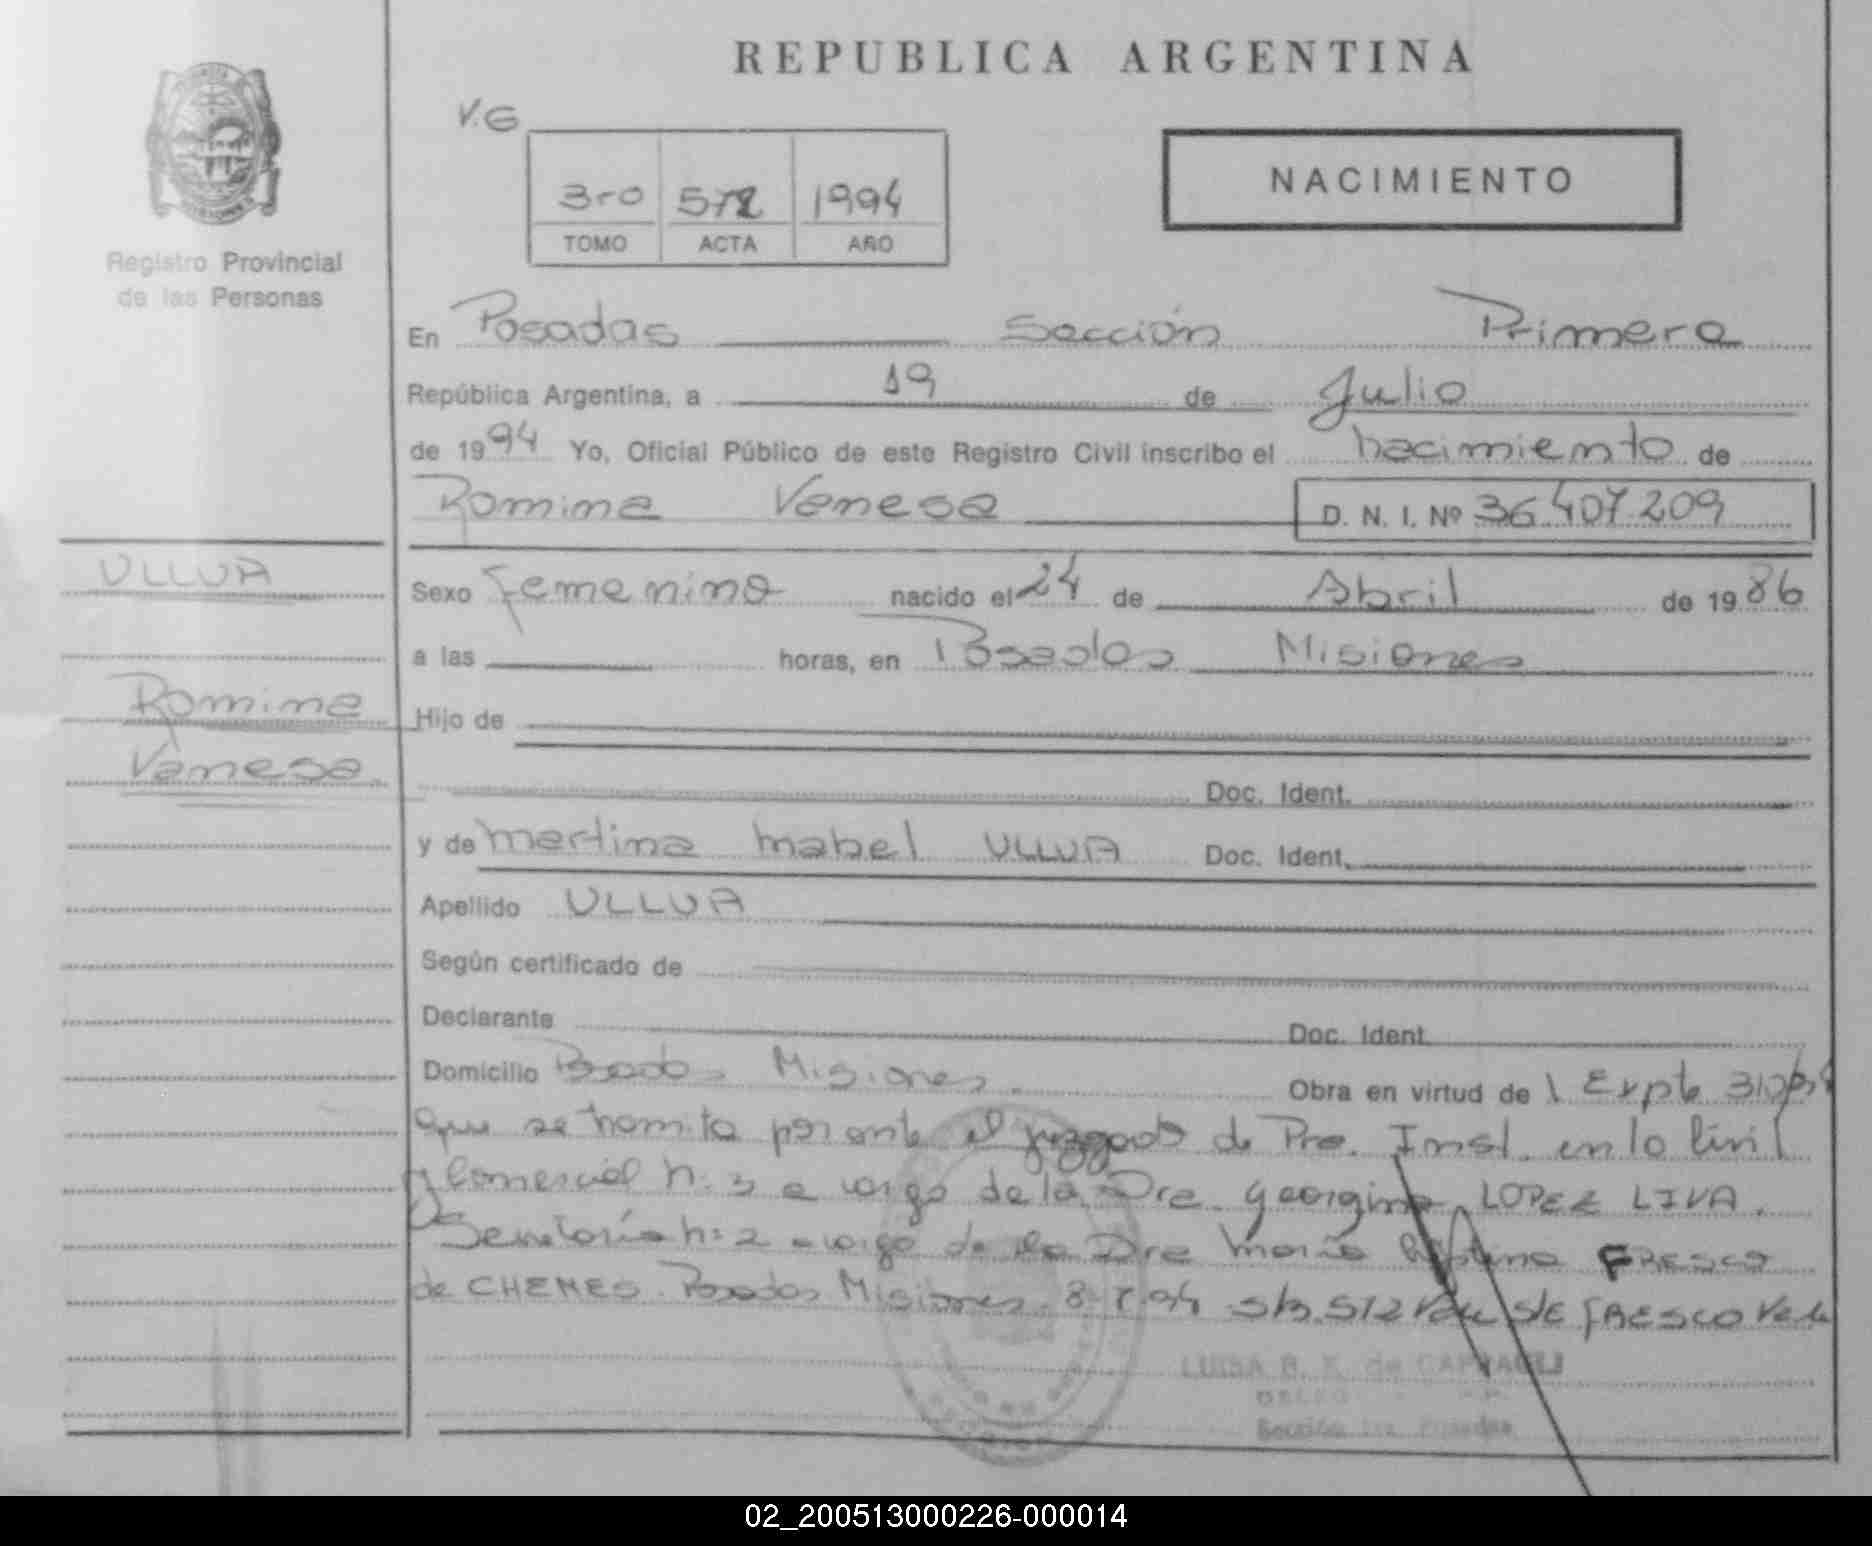 REPUBLICA ARGENTINA
V.G
3ro 572 1994
TOMO ACTA AÑO
NACIMIENTO
Registro Provincial
de las Personas
En Posadas Sección Primera
República Argentina, a 19 de Julio
de 1994 Yo, Oficial Público de este Registro Civil inscribo el nacimiento de
Romina Vanesa D. N. I. Nº 36.407.209
ULLUA
Romina
Vanesa.
Sexo Femenino nacido el 24 de Abril de 1986
a las horas, en Posadas Misiones
Hijo de
Doc. Ident.
y de Martina Mabel ULLUA Doc. Ident.
Apellido ULLUA
Según certificado de
Declarante Doc. Ident.
Domicilio Posadas Misiones. Obra en virtud de Expte
que se tramita por ante el juzgado de Pra. Inst. en lo Civil
y Comercial n: 3 a cargo de la Dra. Georgina LOPEZ LIVA.
Secretaría n: 2 a cargo de la Dra María FRESCO
de CHEMES. Posadas Misiones. 8-7-94 S/B. 572 Vale S/E FRESCO Vale
LUISA B. K. de
Sección 1ra. Posadas
02_200513000226-000014